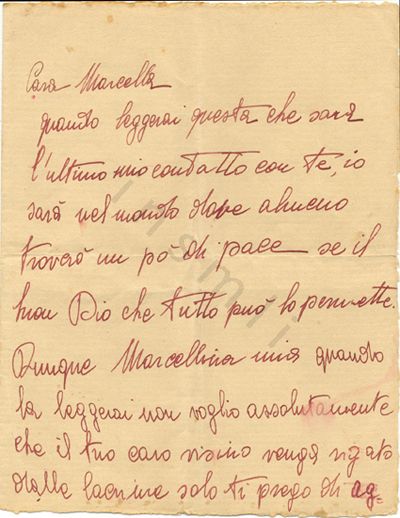 Cara Marcella
quando leggerai questa che sarà
l'ultimo mio contatto con te, io
sarà nel mondo dove almeno
troverò un pò di pace se il
buon Dio che tutto può lo permette.
Dunque Marcellina mia quando
la leggerai non voglio assolutamente
che il tuo caro visino venga rigato
dalle lacrime solo ti prego di ag=